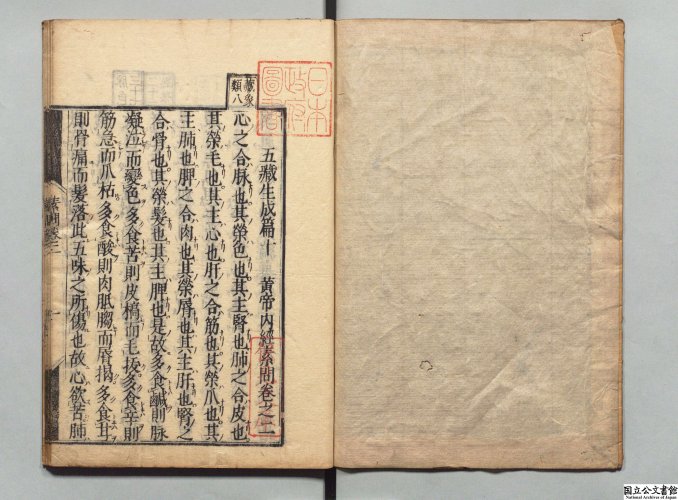 日本
政府
圖書
五藏生成篇十　黄帝内經素問卷之三
藏象
類八
心之合脉也其榮色也其主腎也肺之合皮也
其榮毛也其主心也肝之合筋也其榮爪也其
主肺也脾之合肉也其榮脣也其主肝也腎之
合骨也其榮髮也其主脾也是故多食鹹則脉
凝泣而變色多食苦則皮槁而毛拔多食辛則
筋急而爪枯多食酸則肉胝䐢而脣揭多食甘
則骨痛而髮落此五味之所傷也故心欲苦肺
素問卷三
国立公文書館
National Archives of Japan